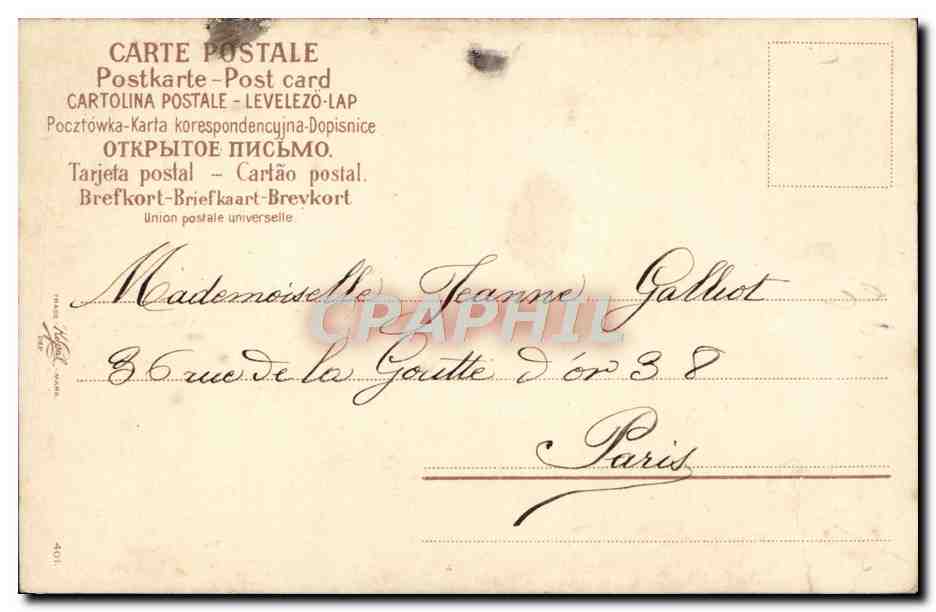 CARTE POSTALE
Postkarte - Post card
CARTOLINA POSTALE - LEVELEZÖ-LAP
Pocztówka-Karta korespondencyjna-Dopisnice
ОТКРЫТОЕ ПИСЬМО.
Tarjeta postal - Cartão postal.
Brefkort-Briefkaart-Brevkort
Union postale universelle
Mademoiselle Jeanne Galliot
CPAPHIL
36 rue de la Goutte d'or 38
Paris
TRADE MARK
401.